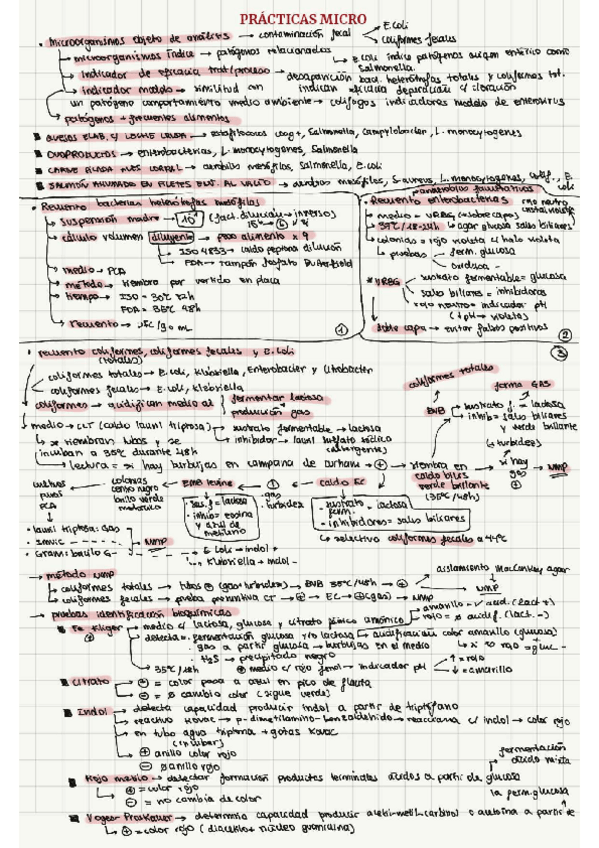 PRÁCTICAS MICRO
• Microorganismos objeto de análisis → contaminación fecal → E.Coli
→ coliformes fecales
→ microorganismos índice → patógenos relacionados → E.coli índice patógenos origen entérico como Salmonella.
→ indicador de eficacia trat/proceso → desaparición bact. heterótrofas totales y coliformes tot. indican eficacia depuración c/ cloración
→ indicador modelo → similitud con un patógeno comportamiento medio ambiente → colifagos indicadores modelo de enterovirus
→ patógenos + frecuentes alimentos
QUESOS ELAB. C/ LECHE CRUDA → estafilococos coag+, Salmonella, campylobacter, L. monocytogenes
OVOPRODUCTOS → enterobacterias, L. monocytogenes, Salmonella
CARNE PICADA → aerobios mesófilos, Salmonella, E.coli
SALMÓN AHUMADO EN FILETES ENV. AL VACÍO → aerobios mesófilos, S. aureus, L. monocytogenes, E. coli
anaerobios facultativos
• Recuento bacterias heterótrofas mesófilas
→ suspensión madre → 10
→ cálculo volumen diluyente → peso alimento x 9
→ ISO 4833 → caldo peptona dilución
→ FDA → tampón fosfato Butterfield
→ medio → PCA
→ método → siembra por vertido en placa
→ tiempo → ISO = 30ºC 72h
FDA = 35ºC 48h
→ recuento → ufc/g o mL
①
• Recuento enterobacterias
→ medio → VRBG (+ sobre capa)
→ 37ºC/18-24h → agar glucosa sales biliares
→ colonias → rojo violeta c/ halo violeta
→ pruebas → ferm. glucosa
→ oxidasa -
* VRBG → sustrato fermentable = glucosa
→ sales biliares = inhibidores
→ rojo neutro = indicador pH
(↓pH → violeta)
→ sobre capa → evitar falsos positivos
②
③
• recuento coliformes, coliformes fecales y E.coli
(totales)
→ coliformes totales → E.coli, Klebsiella, Enterobacter y Citrobacter
→ coliformes fecales → E.coli, Klebsiella
coliformes → acidifican medio al fermentar lactosa
producción gas
→ medio → CLT (caldo lauril triptosa) → sustrato fermentable → lactosa
→ inhibidor → lauril sulfato sódico
(detergente)
→ se siembran tubos y se incuban a 35ºC durante 48h
→ lectura = si hay burbujas en campana de durham → ⊕ → siembra en caldo bilis verde brillante
(35ºC/48h)
coliformes totales
BVB → sustrato f. = lactosa
→ inhib = sales biliares y verde brillante
forma GAS
(+ turbidez)
si hay gas ⊕ → NMP
cultivos puros PCA
colonias centro negro brillo verde metálico
EMB Levine
· sus. f = lactosa
· inhib = eosina y azul de metileno
gas turbidez
caldo EC
· sustrato ferm. = lactosa
· inhibidores = sales biliares
→ selectivo coliformes fecales a 44ºC
• lauril triptosa: Gas
• IMViC
• Gram: bacilo G-
NMP
→ E.Coli → indol +
→ Klebsiella → indol -
→ método NMP
→ coliformes totales → tubos ⊕ (gas + turbidez) → BVB 35ºC/48h → ⊕ → aislamiento MacConkey agar
→ NMP
→ coliformes fecales → prueba presuntiva CT → ⊕ → EC → ⊕ (gas) → NMP
→ pruebas identificación bioquímicas
Kligler → medio c/ lactosa, glucosa y citrato férrico amónico → amarillo → v acid. (lact +)
→ rojo = ø acidif. (lact. -)
→ detecta = fermentación glucosa y/o lactosa → acidificación color amarillo (glucosa)
· gas a partir glucosa → burbujas en el medio
· H₂S → precipitado negro
→ si todo rojo = gluc -
→ 35ºC/18h ⊕ medio c/ rojo fenol → indicador pH → ↑ = rojo
→ ↓ = amarillo
Citrato → ⊕ = color pasa a azul en pico de flauta
→ ⊖ = ø cambio color (sigue verde)
Indol → detecta capacidad producir indol a partir de triptófano
→ reactivo Kovac → p-dimetilamino-benzaldehído → reacciona c/ indol → color rojo
→ en tubo agua triptona + gotas Kovac
(incubar)
⊕ anillo color rojo
⊖ ø anillo rojo
Rojo metilo → detectar formación productos terminales ácidos a partir de glucosa
fermentación ácido mixta
→ ⊕ = color rojo
→ ⊖ = no cambia de color
la ferm. glucosa
Voges-Proskauer → determina capacidad producir acetil-metil-carbinol o acetoína a partir de
→ ⊕ = color rojo (diacetilo + núcleo guanidina)